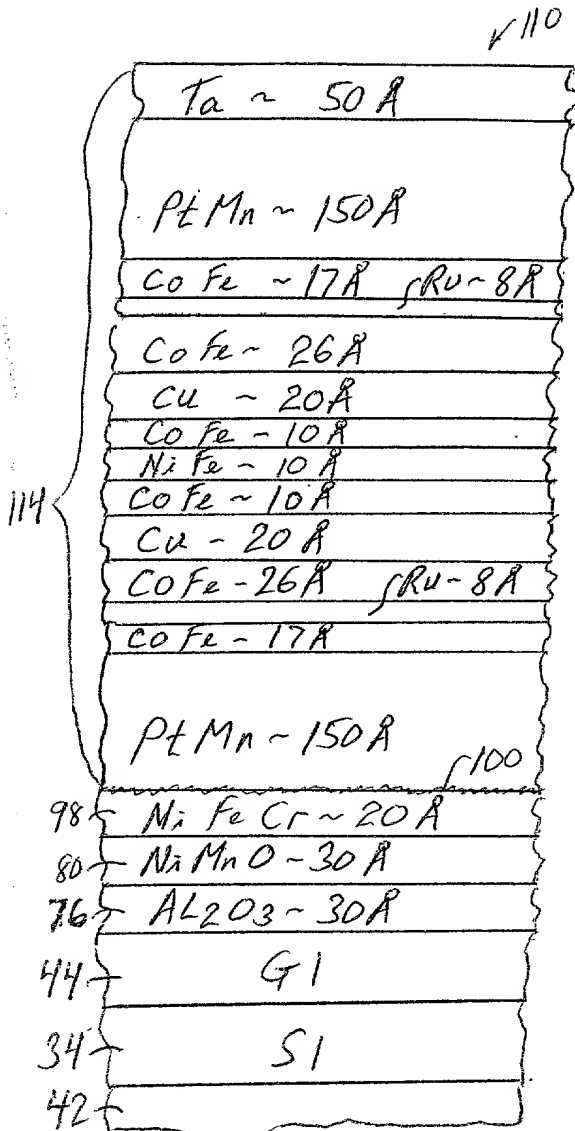 110
Ta ~ 50Å
PtMn ~ 150Å
CoFe ~ 17Å Ru ~ 8Å
CoFe ~ 26Å
Cu ~ 20Å
CoFe - 10Å
NiFe - 10Å
CoFe ~ 10Å
114
Cu - 20Å
CoFe - 26Å Ru - 8Å
CoFe - 17Å
PtMn ~ 150Å
100
98 NiFeCr ~ 20Å
80 NiMnO - 30Å
76 AL2O3 ~ 30Å
44 G1
34 S1
42